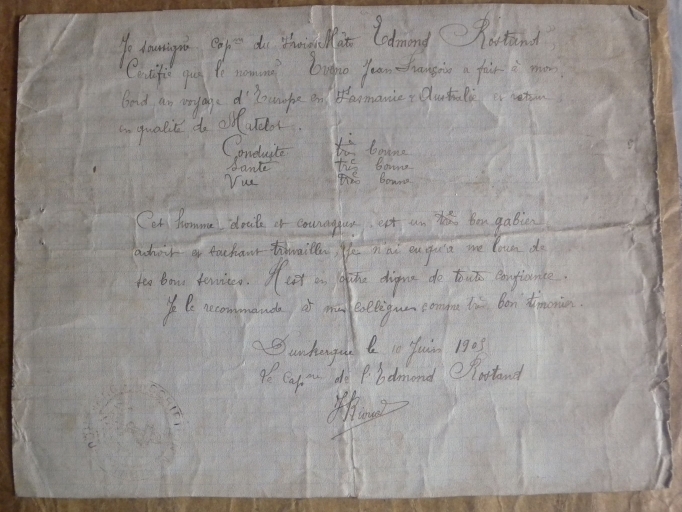 Je soussigné Cap^ne du Trois Mâts Edmond Rostand
Certifie que le nommé Eveno Jean François a fait à mon
bord un voyage d'Europe en Tasmanie & Australie et retour
en qualité de Matelot.
Conduite très bonne
Santé très bonne
Vue très bonne
Cet homme docile et courageux est un très bon gabier
adroit et sachant travailler, je n'ai eu qu'à me louer de
ses bons services. Il est en outre digne de toute confiance.
Je le recommande à mes collègues comme très bon timonier.
Dunkerque le 10 Juin 1905
Le Cap^ne de l'Edmond Rostand